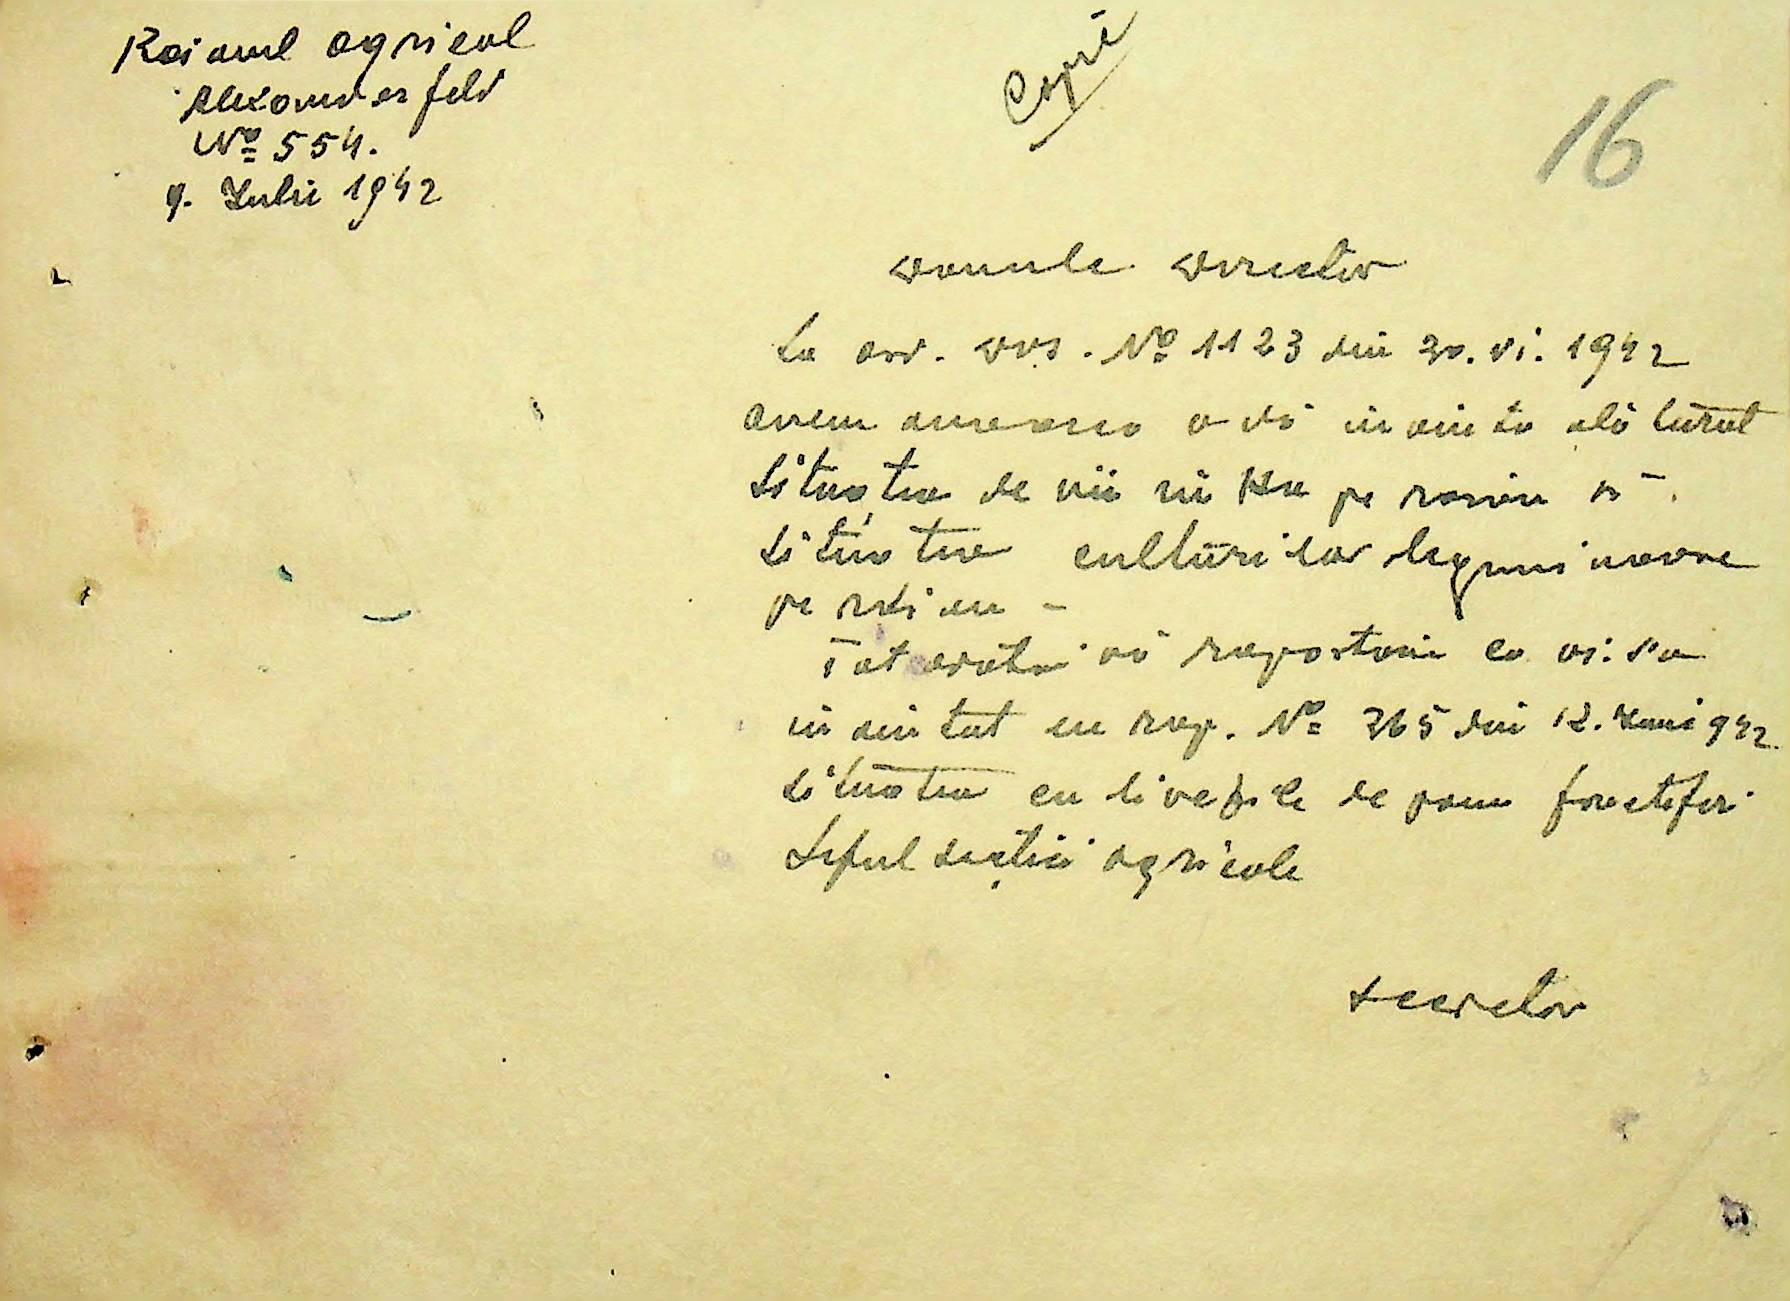 Raionul agricol
Alexanderfeld
Nº 554.
9. Iulie 1942
Copie
16
Domnule Director
La ord. Dvs. Nº 1123 din 30.VI.1942
avem onoarea a vă înainta alăturat
situația de vii în Ha pe raion și
situatia culturilor leguminoase
pe raion –
Tot odata vă raportăm ca vi s'a
inaintat cu rap. Nº 365 din 12. Iunie 942
situatia cu livezile de pomi fructiferi
Seful secției agricole
Secretar